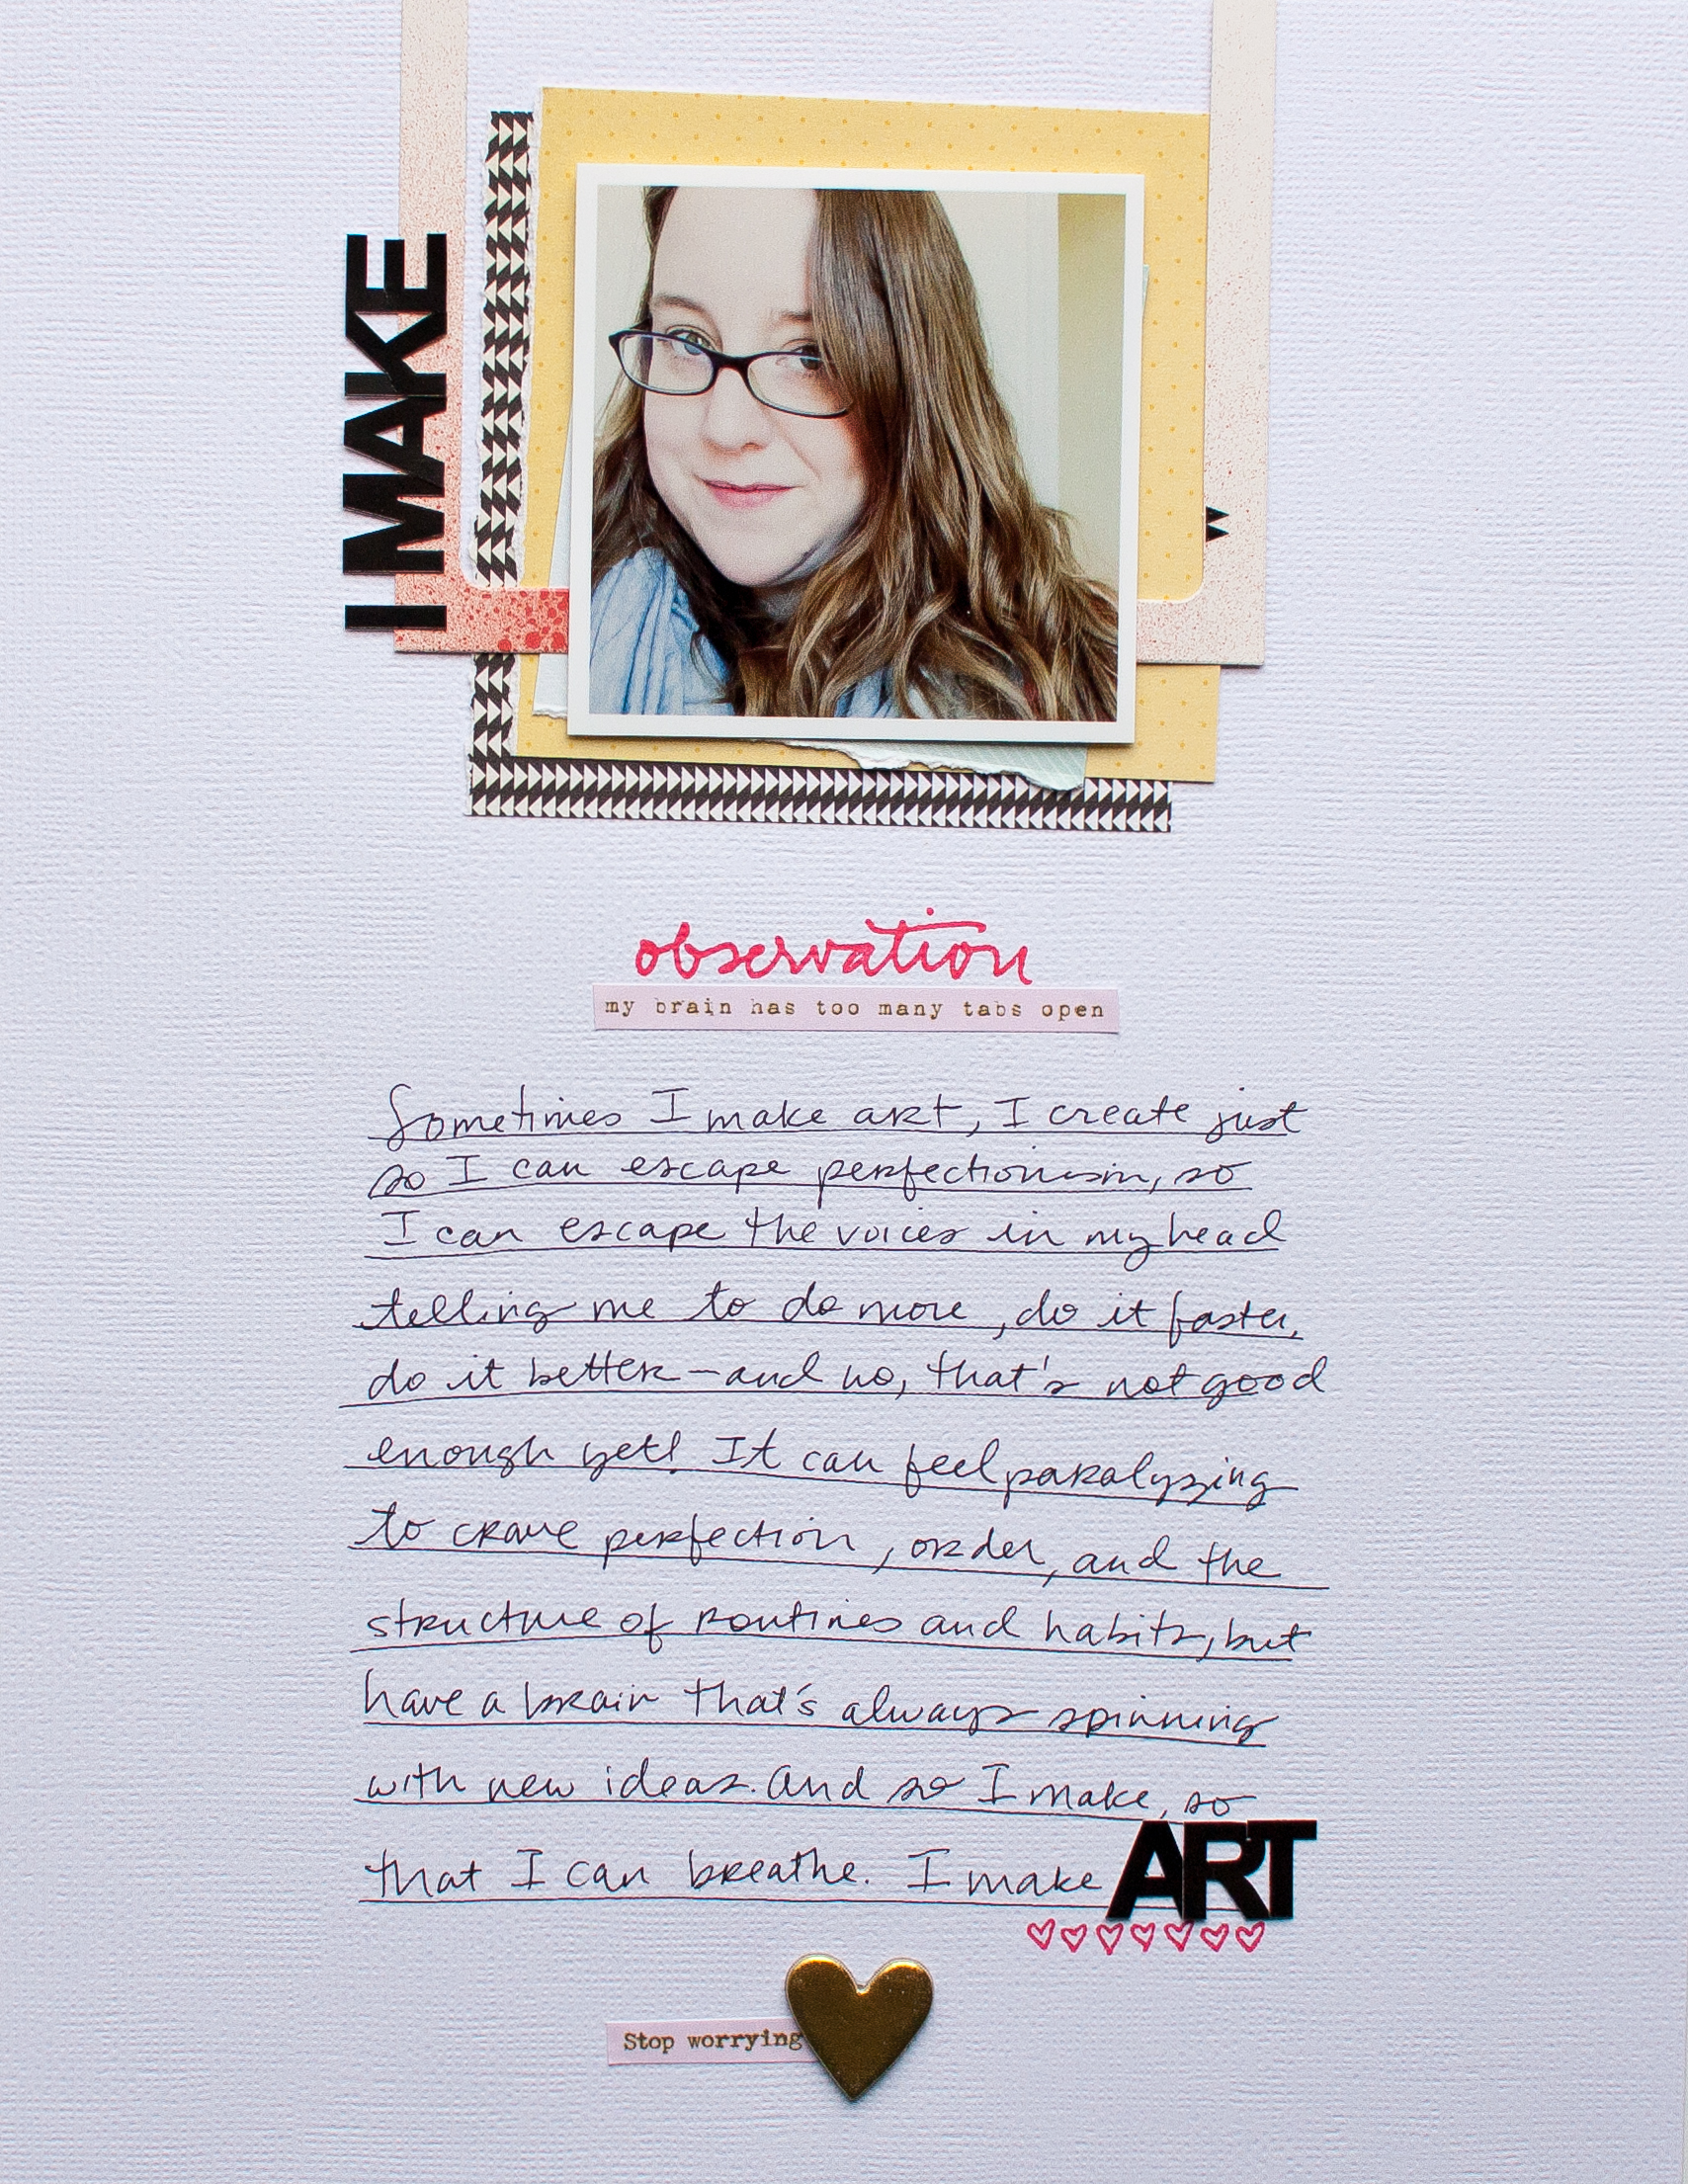 I MAKE
observation
my brain has too many tabs open
Sometimes I make art, I create just
so I can escape perfectionism, so
I can escape the voices in my head
telling me to do more, do it faster,
do it better—and no, that's not good
enough yet! It can feel paralyzing
to crave perfection, order, and the
structure of routines and habits, but
have a brain that's always spinning
with new ideas. And so I make, so
that I can breathe. I make ART
Stop worrying